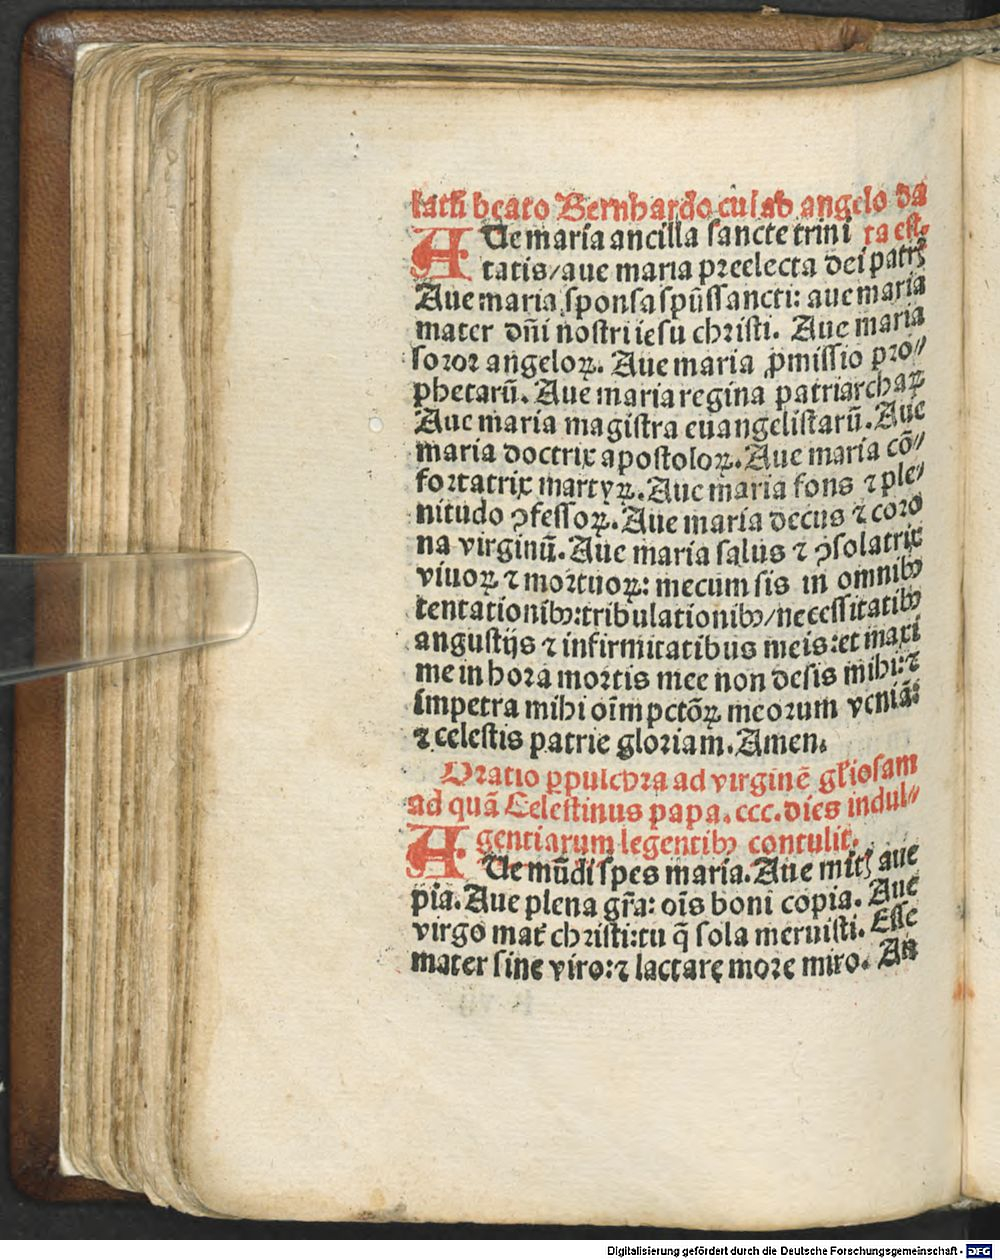 lath beato Bernhardo cui ab angelo da
AVe maria ancilla sancte trini ta est.
tatis/aue maria preelecta dei patrꝭ
Aue maria sponsa spūssancti: aue maria
mater dn̄i nostri iesu christi. Aue maria
soror angeloꝝ. Aue maria ꝓmissio pro⸗
phetarū. Aue maria regina patriarchaꝝ
Aue maria magistra euangelistarū. Aue
maria doctrix apostoloꝝ. Aue maria cō⸗
fortatrix martyꝝ. Aue maria fons ⁊ ple⸗
nitudo ꝯfessoꝝ. Aue maria decus ⁊ coro
na virginū. Aue maria salus ⁊ ꝯsolatrix
viuoꝝ ⁊ mortuoꝝ: mecum sis in omnibꝰ
tentationibꝰ:tribulationibꝰ/necessitatibꝰ
angustijs ⁊ infirmitatibus meis:et maxi
me in hora mortis mee non desis mihi:⁊
impetra mihi oīm pctōꝝ meorum veniā:
⁊ celestis patrie gloriam. Amen.
Oratio ꝑpulchra ad virginē gl'iosam
ad quā Celestinus papa. ccc. dies indul⸗
gentiarum legentibꝰ contulit.
AVe mūdi spes maria. Aue mitꝭ aue
pia. Aue plena gr̄a: oīs boni copia. Aue
virgo mat̄ christi:tu q̄ sola meruisti. Esse
mater sine viro:⁊ lactare more miro. An
Digitalisierung gefördert durch die Deutsche Forschungsgemeinschaft - DFG